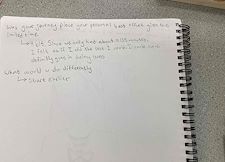 Does your journey piece your personal best effort given the
limited time
↳ A bit. Since we only had about minutes.
I felt as if I did the best I could. I could have
definitely gone in being
What would u do differently
↳ Start earlier